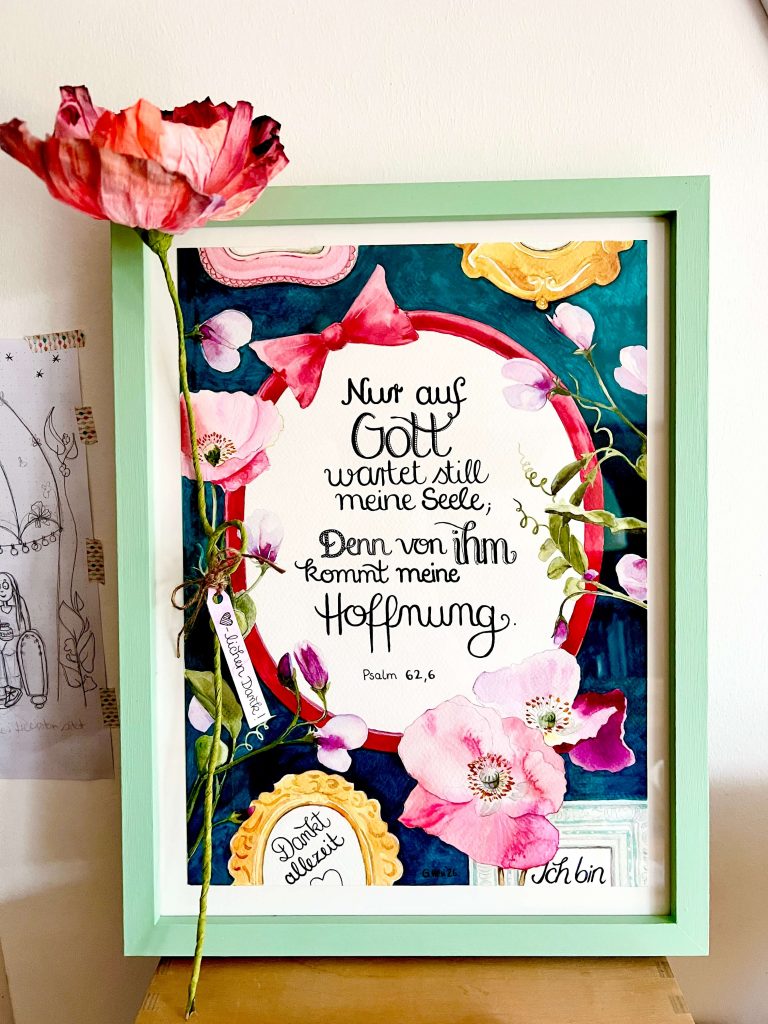 Nur auf
Gott
wartet still
meine Seele;
Denn von ihm
kommt meine
Hoffnung.
Psalm 62,6
♥-lichen Dank!
Dankt
allezeit
Ich bin